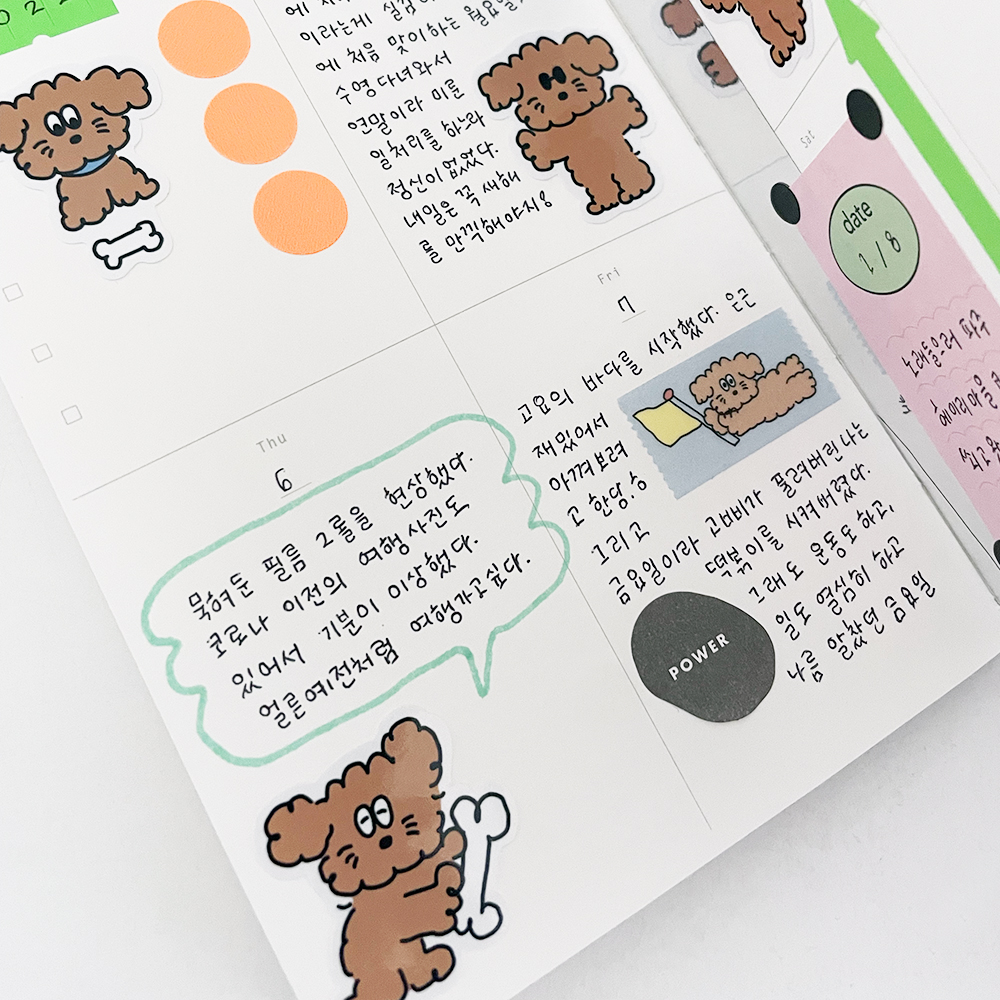 202
이라는게 실감
에 처음 맞이하는 월요일
수영다녀와서
연말이라 미룬
일처리를 하느라
정신이 없었다.
내일은 꼭 새해
를 만끽해야지!
Thu
6
묵혀둔 필름 2롤을 현상했다.
코로나 이전의 여행 사진도
있어서 기분이 이상했다.
얼른 예전처럼 여행가고싶다.
Fri
7
고요의 바다를 시작했다. 은근
재밌어서
아껴보려
고 한당.
그리고
금요일이라 고삐가 풀려버린 나는
떡볶이를 시켜버렸다.
그래도 운동도 하고,
일도 열심히 하고
나름 알찼던 금요일
POWER
Sat
date
1/8
노래들으러 파주
헤이리마을